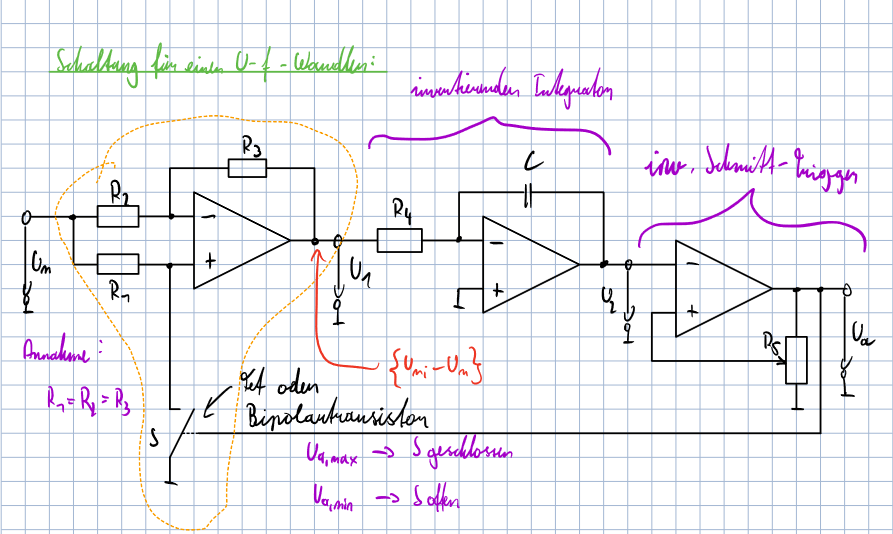 Schaltung für einen U-f-Wandler:
invertierender Integrator
inv. Schmitt-Trigger
R3
C
R2
R4
-
-
-
+
+
+
R1
U1
U2
Ua
R5
Annahme:
R1 = R2 = R3
Fet oder
Bipolartransistor
S
Ua,max -> S geschlossen
Ua,min -> S offen